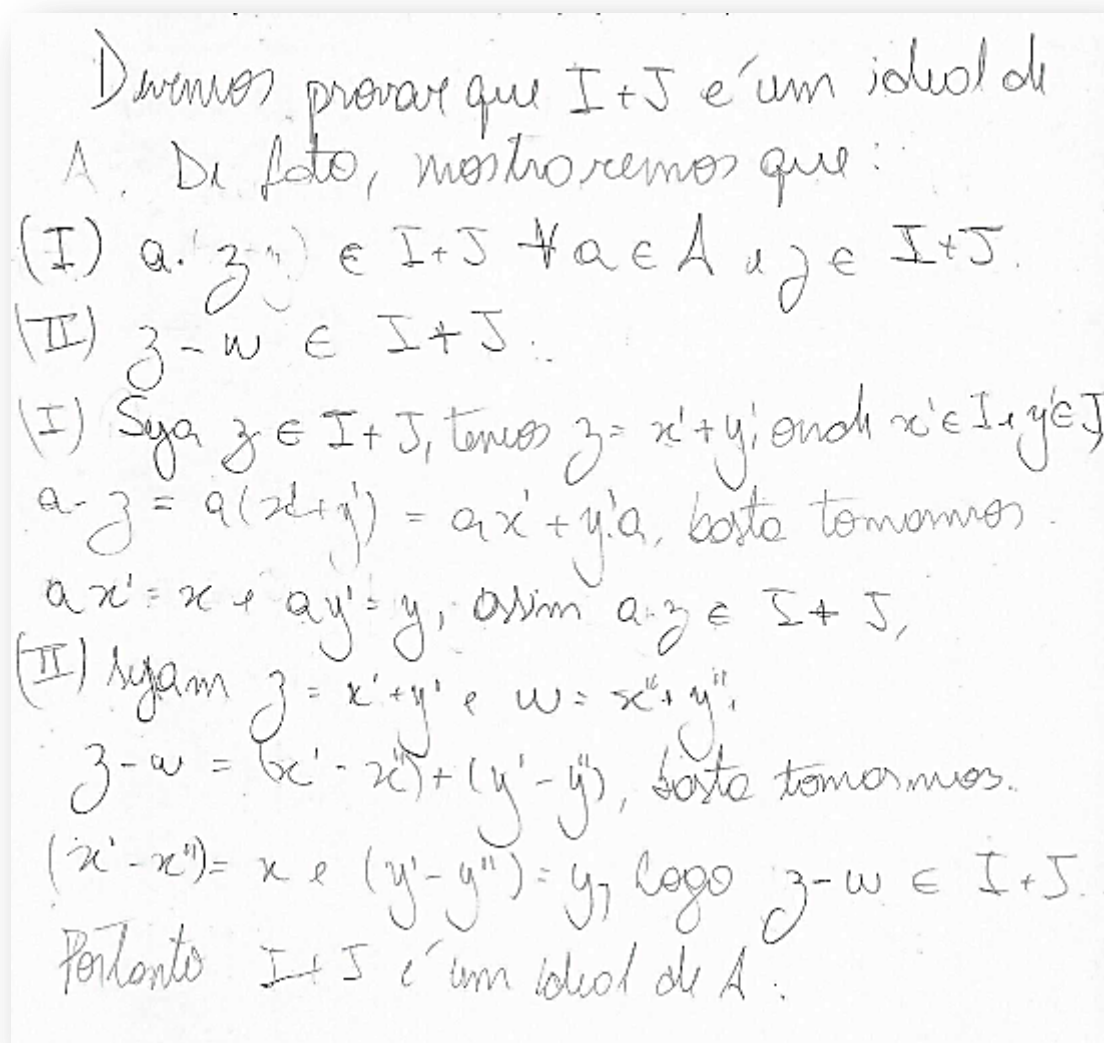 Devemos provar que I+J é um ideal de
A. De fato, mostraremos que:
(I) a·z ∈ I+J ∀ a ∈ A e z ∈ I+J.
(II) z-w ∈ I+J.
(I) Seja z ∈ I+J, temos z = x'+y', onde x' ∈ I e y' ∈ J
a·z = a(x'+y') = ax'+y'a, basta tomarmos
ax' = x e ay' = y, assim a·z ∈ I+J,
(II) sejam z = x'+y' e w = x''+y'',
z-w = (x'-x'')+(y'-y''), basta tomarmos.
(x'-x'') = x e (y'-y'') = y, logo z-w ∈ I+J.
Portanto I+J é um ideal de A.